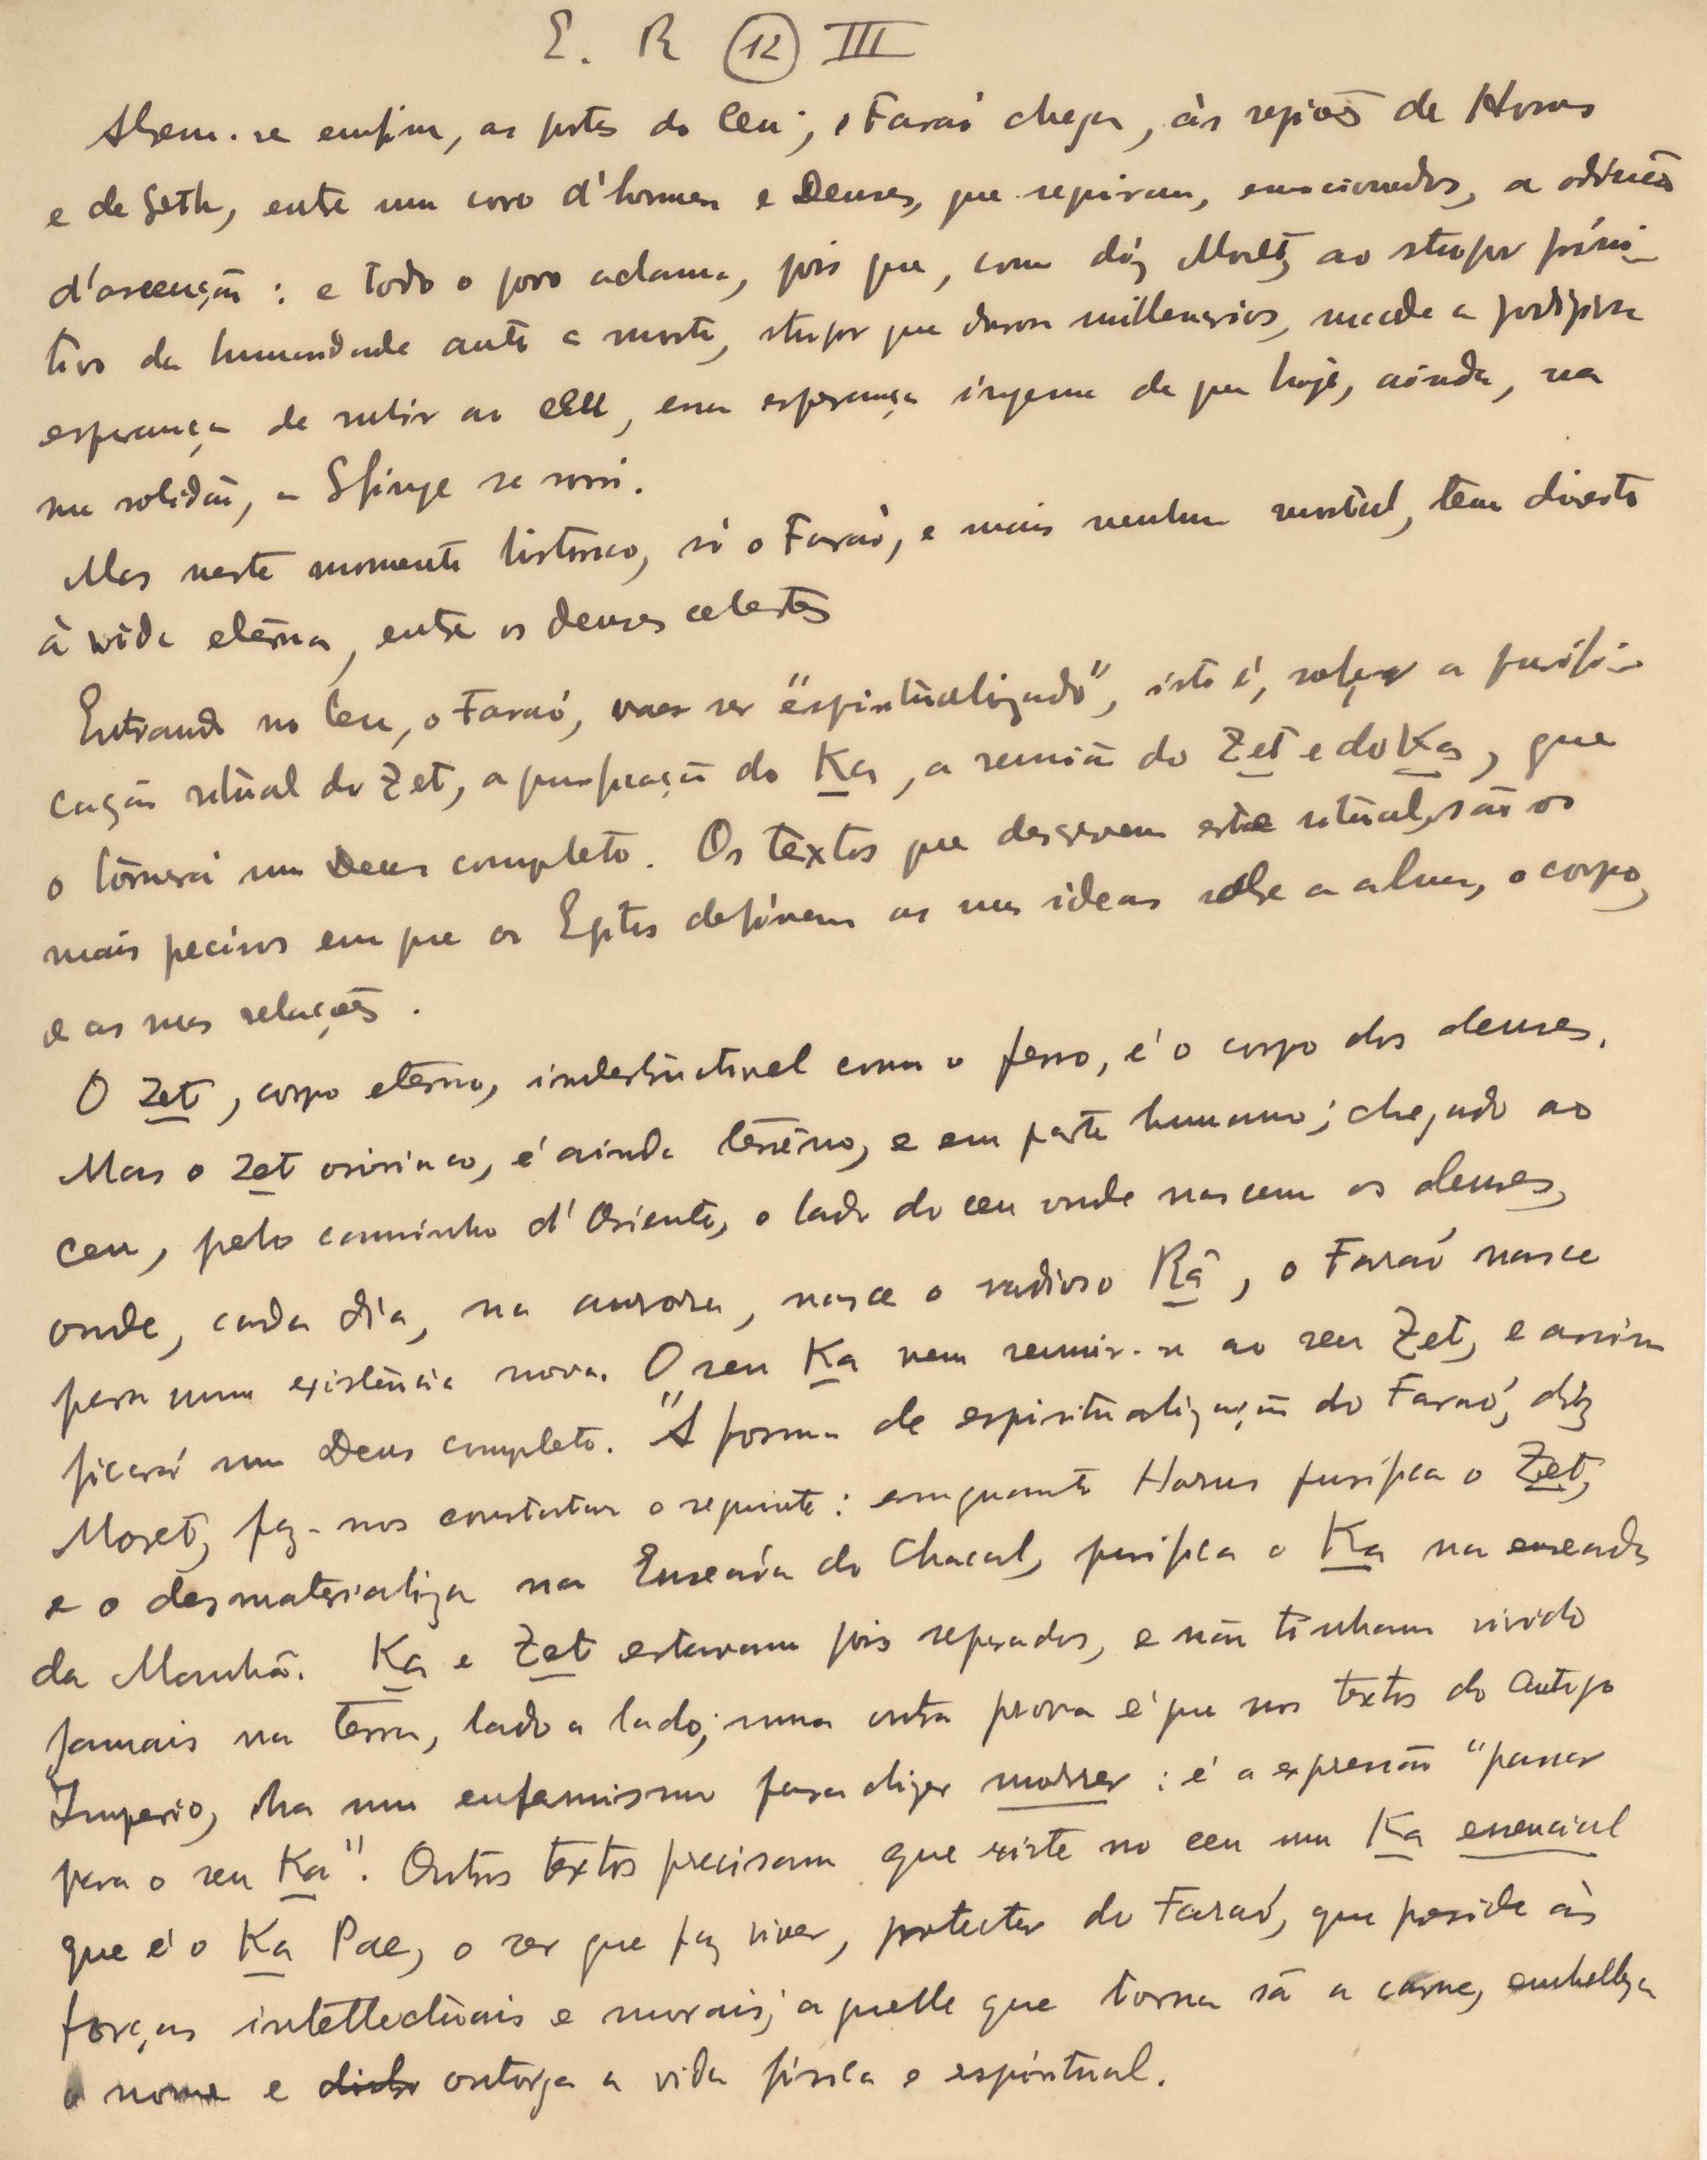 E. R (12) III
Abrem-se emfim, as portas do Ceu; o Faraó chega, às regiões de Horus
e de Seth, entre um coro d'homens e Deuses, que repiram, emocionados, a odisséa
d'ascenção: e todo o povo aclama, pois que, como diz Moret, ao stupor primi-
tivo da humanidade ante a morte, stupor que durou millenarios, sucede a prodigiosa
esperança de subir ao céu, essa esperança ingenua de que hoje, ainda, na
sua solidão, a Sfinge se sorri.
Mas neste momento historico, só o Faraó, e mais nenhum mortal, tem direito
à vida etérna, entre os deuses celestes
Entrando no Ceu, o Faraó, vaes ser "espiritualizado", isto é, sofrer a purifi-
cação ritual do Zet, a purificação do Ka, a reunião do Zet e do Ka, que
o tornará um Deus completo. Os textos que descrevem este ritual, são os
mais precisos em que os Egiptos definem as suas ideas sobre a alma, o corpo,
e as suas relações.
O Zet, corpo eterno, indestructivel como o ferro, é o corpo dos deuses.
Mas o Zet osiriaco, é ainda terreno, e em parte humano; chegado ao
Ceu, pelo caminho d'Oriente, o lado do ceu onde nascem os deuses,
onde, cada dia, na aurora, nasce o radioso Râ, o Faraó nasce
para uma existência nova. O seu Ka vem reunir-se ao seu Zet, e assim
ficará um Deus completo. "A forma de espiritualização do Faraó, diz
Moret, faz-nos constatar o seguinte: emquanto Horus purifica o Zet,
e o desmaterializa na Enseada do Chacal, purifica o Ka na enseada
da Manhã. Ka e Zet estavam pois separados, e não tinham vivido
jamais na terra, lado a lado; uma outra prova é que nos textos do Antigo
Imperio, ha um eufemismo para dizer morrer: é a expressão "passar
para o seu Ka". Outros textos precisam que existe no ceu um Ka essencial
que é o Ka Pae, o ser que faz viver, protector do Faraó, que preside às
forças intellectuais e morais; aquelle que torna sã a carne, embelleza
o nome e outorga a vida física e espiritual.